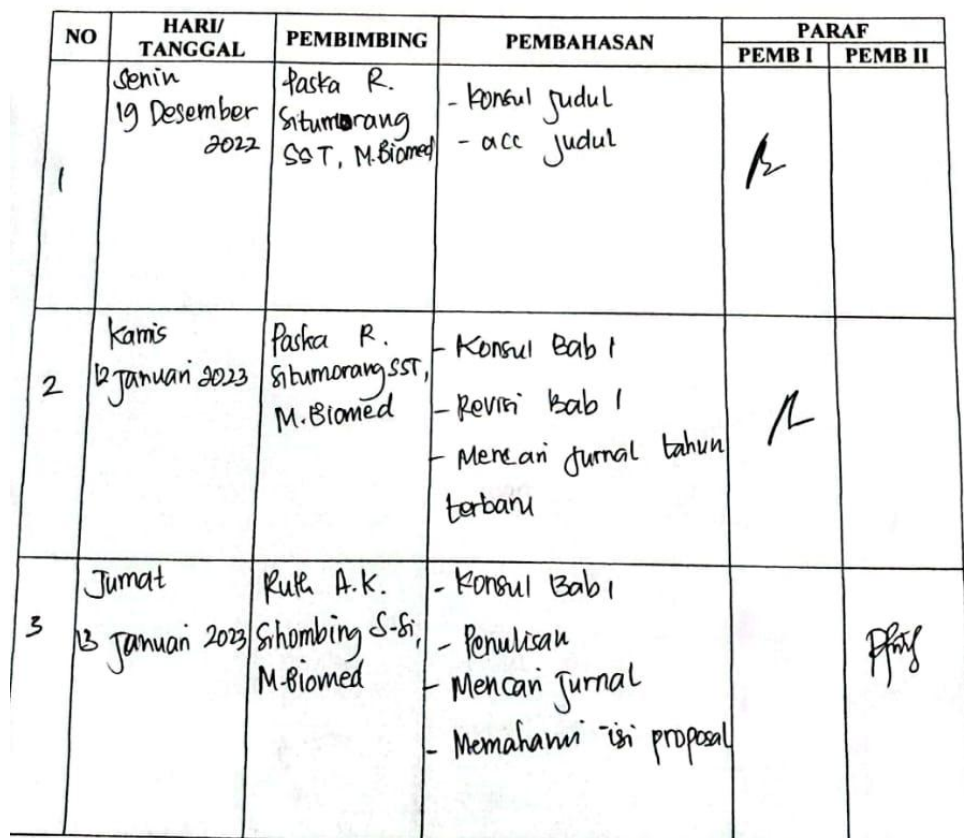 NO HARI/ TANGGAL PEMBIMBING PEMBAHASAN PARAF
PEMB I PEMB II
1
Senin
19 Desember
2022
Paska R.
Situmorang
SST, M.Biomed
- Konsul Judul
- acc Judul
2
Kamis
12 Januari 2023
Paska R.
Situmorang SST,
M.Biomed
- Konsul Bab 1
- Revisi Bab 1
- Mencari Jurnal tahun
terbaru
3
Jumat
13 Januari 2023
Ruth A.K.
Sihombing S-Si,
M.Biomed
- Konsul Bab 1
- Penulisan
- Mencari Jurnal
- Memahami isi proposal